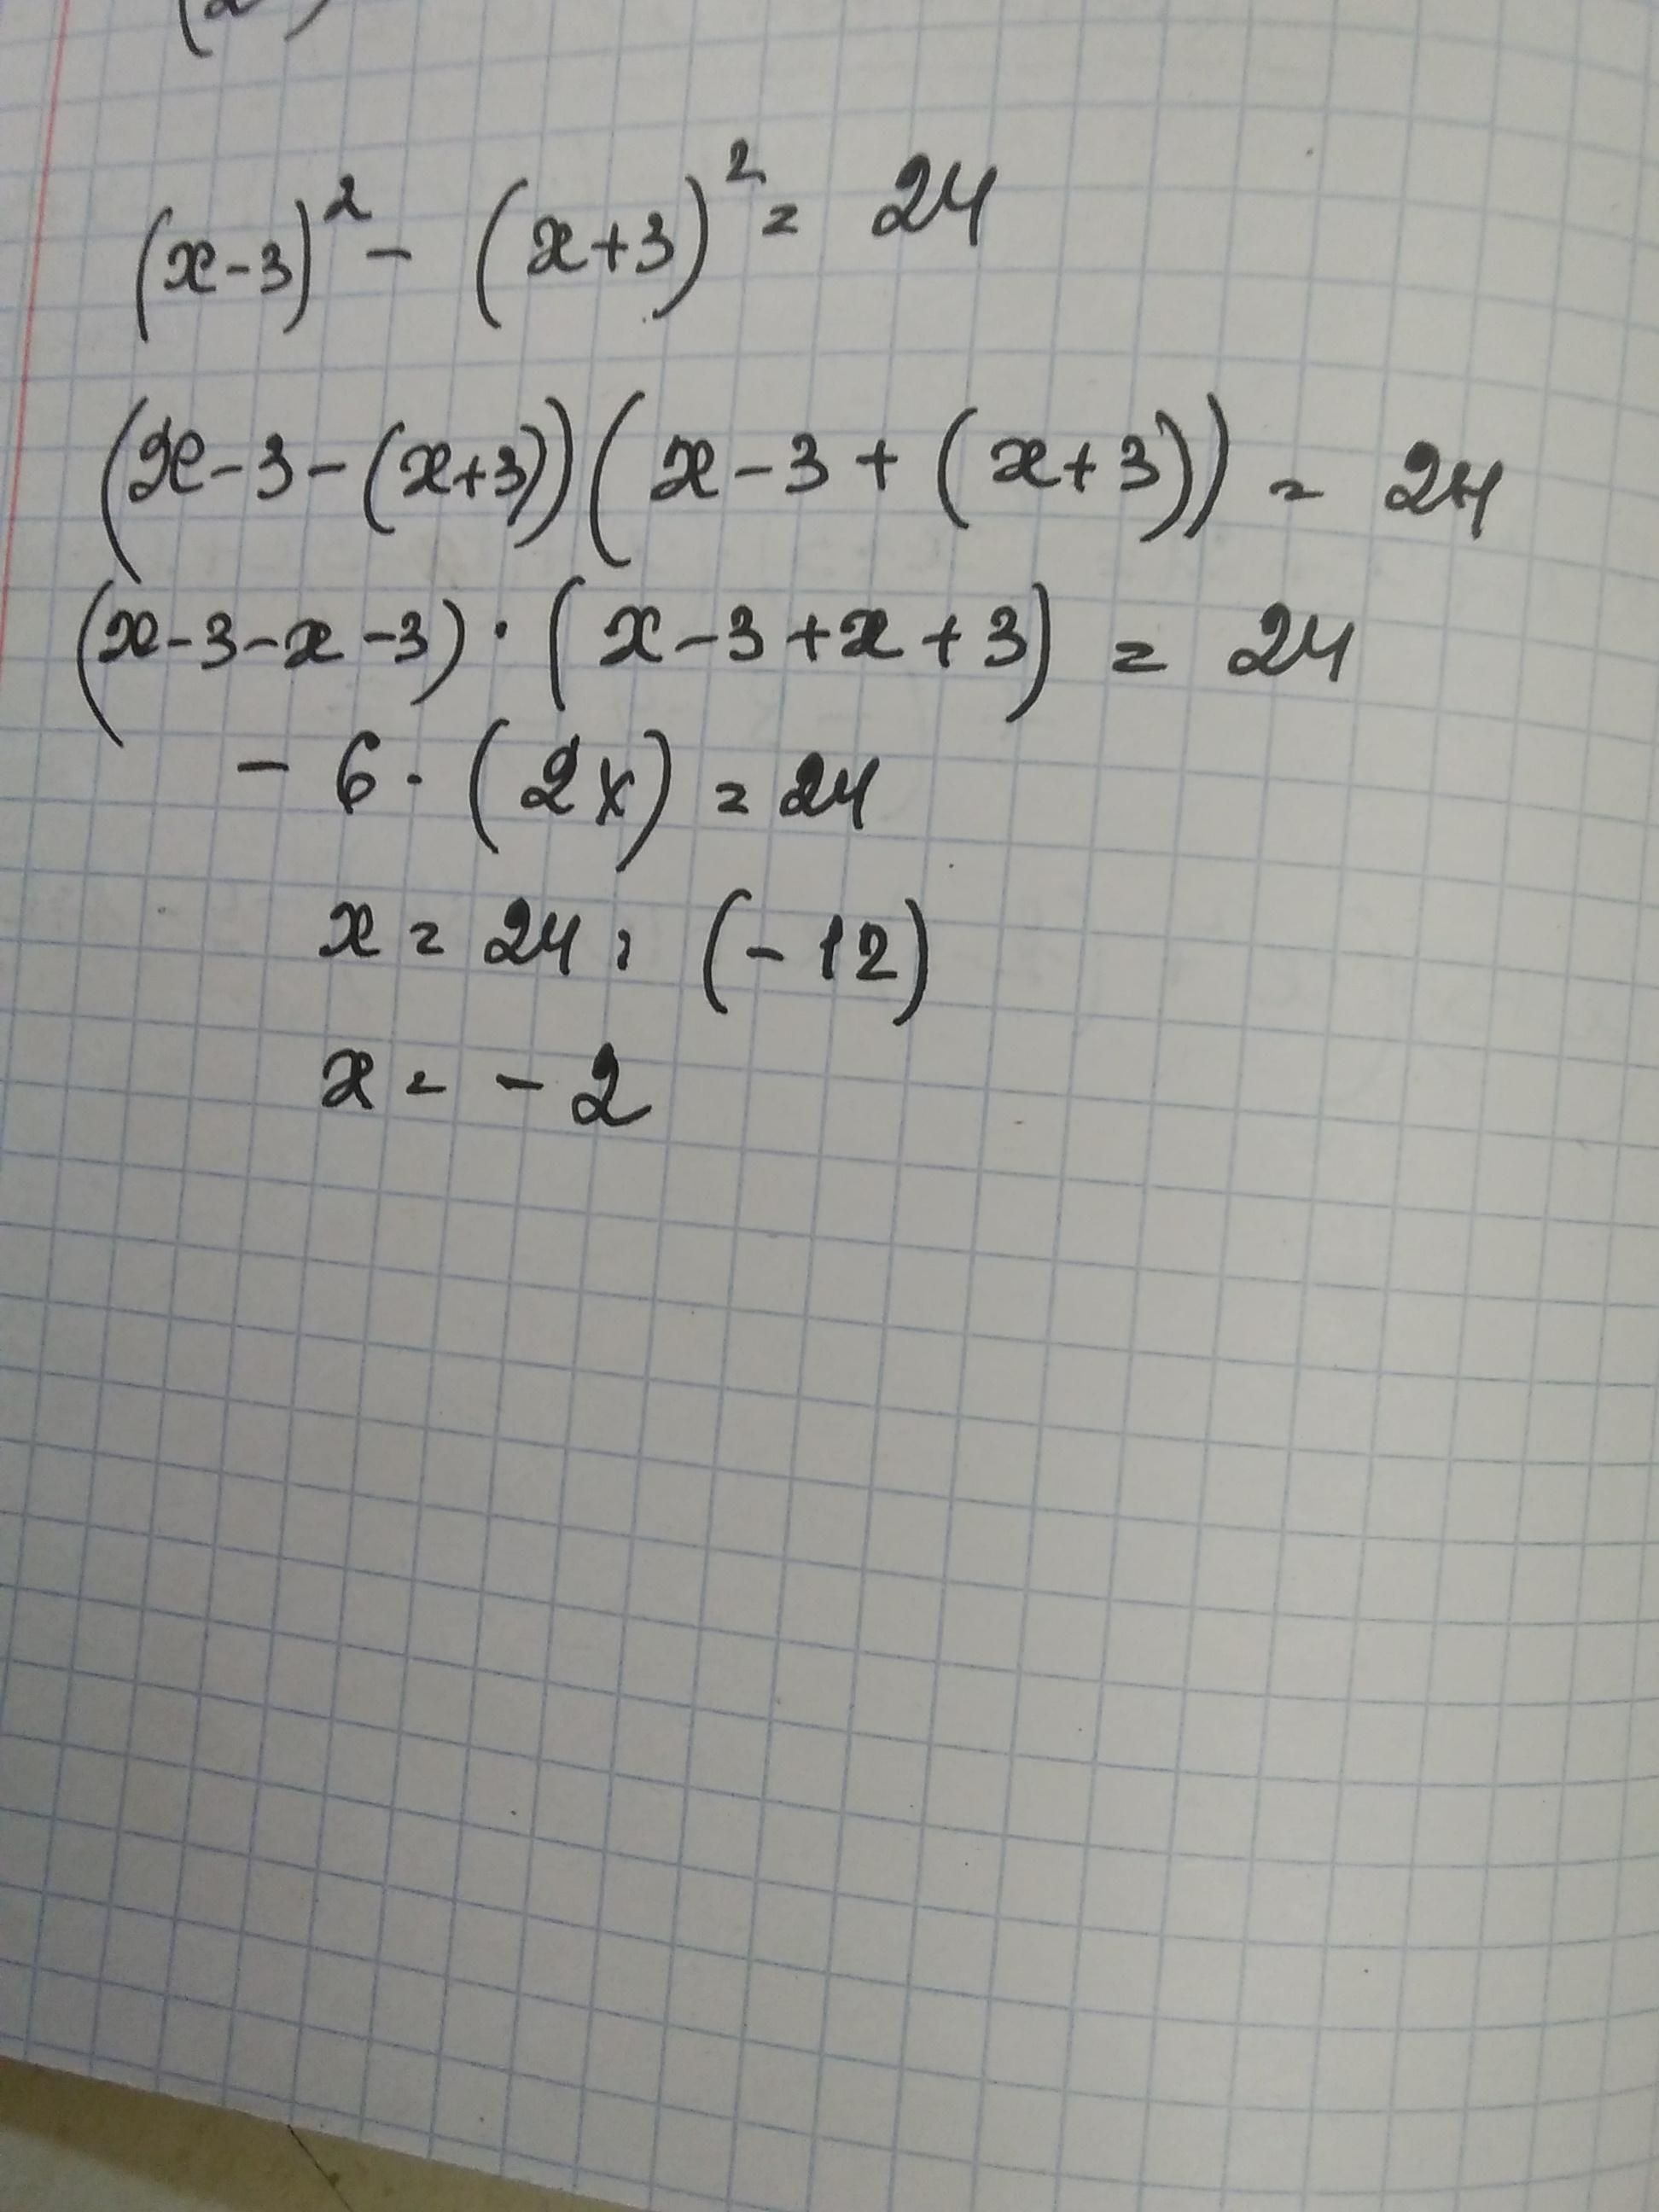 (x-3)² - (x+3)² = 24
(x-3-(x+3))(x-3+(x+3)) = 24
(x-3-x-3)·(x-3+x+3) = 24
-6·(2x) = 24
x = 24 : (-12)
x = -2